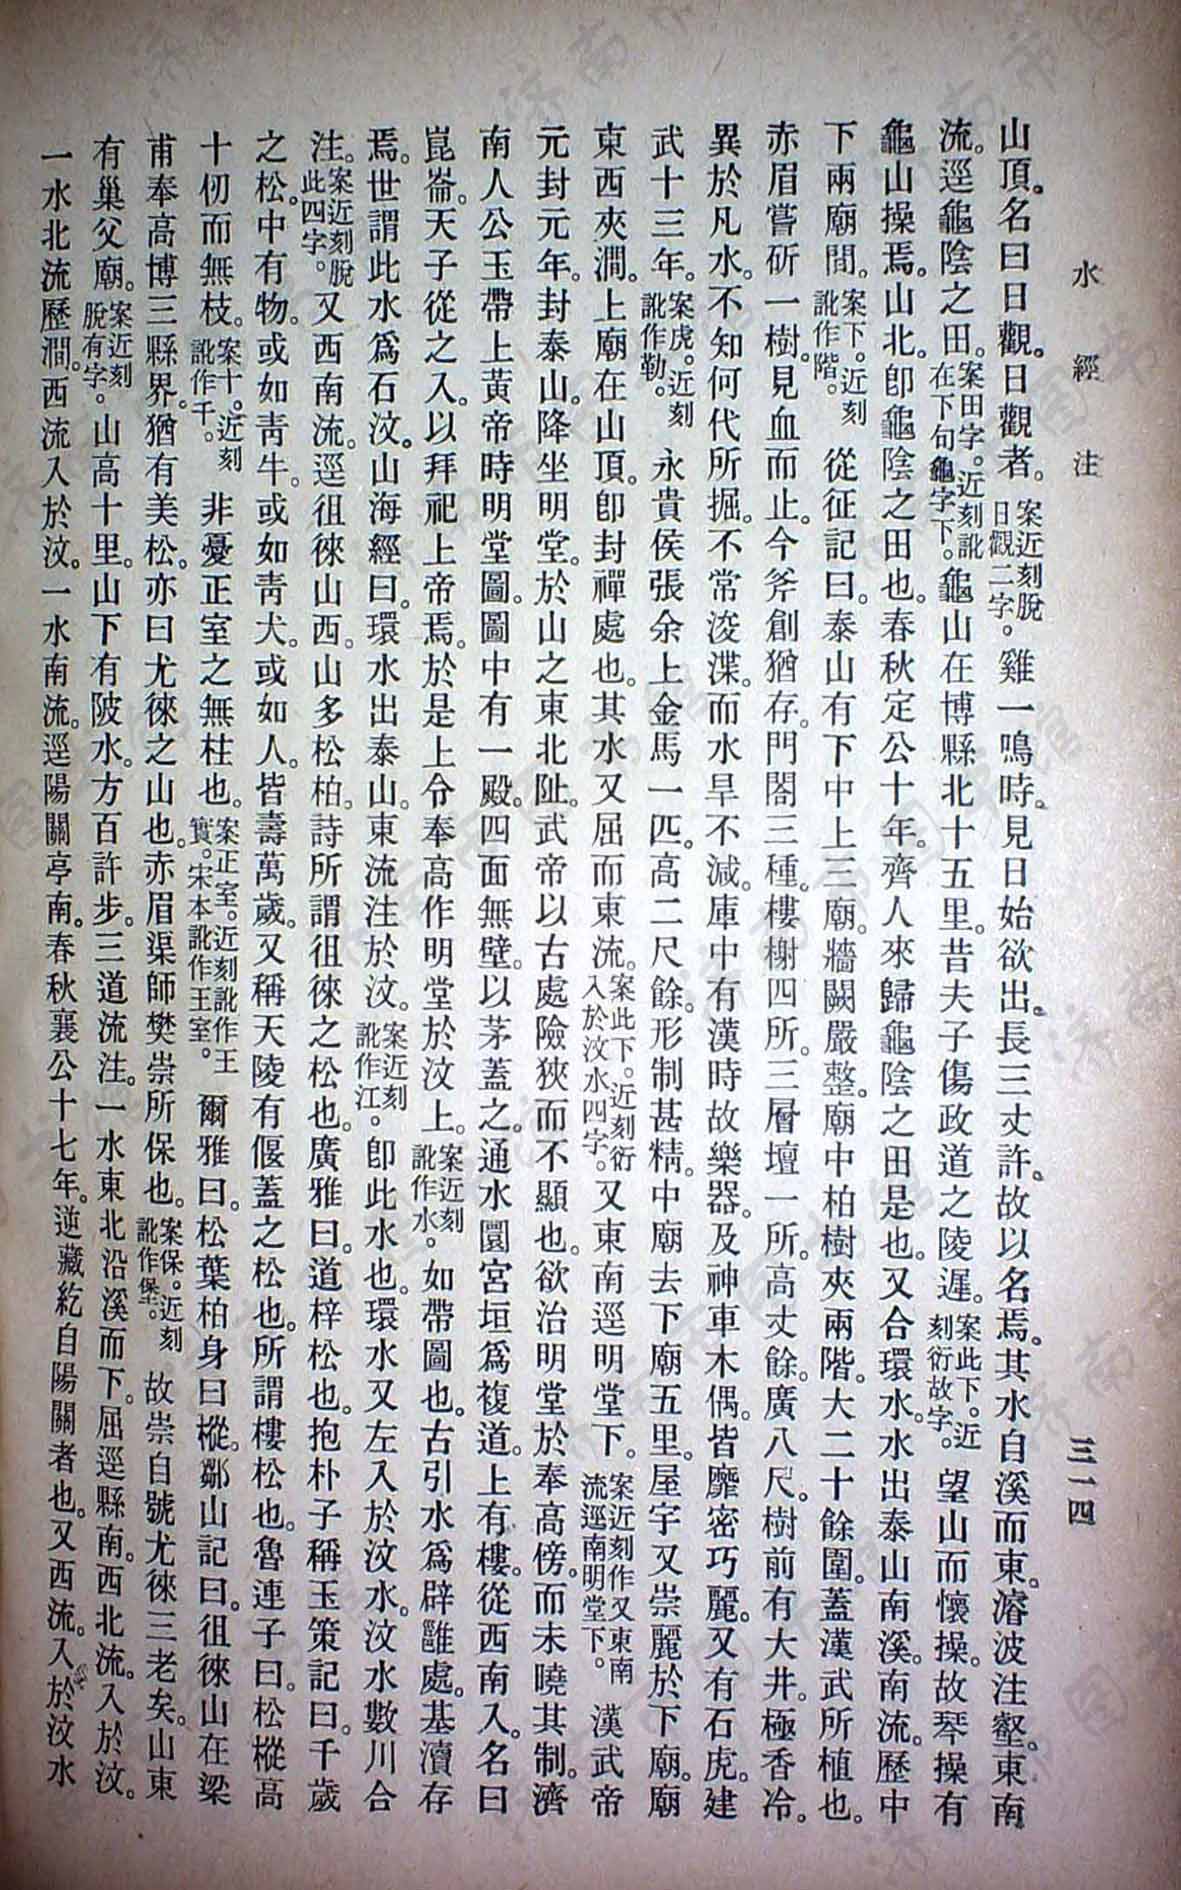 水經注
三一四
山頂。名曰日觀。日觀者。案近刻脫日觀二字。雞一鳴時。見日始欲出。長三丈許。故以名焉。其水自溪而東。濬波注壑。東南
流。逕龜陰之田。案田字。近刻訛在下句龜字下。龜山在博縣北十五里。昔夫子傷政道之陵遲。案此下。近刻衍故字。望山而懷操。故琴操有
龜山操焉。山北。卽龜陰之田也。春秋定公十年。齊人來歸龜陰之田是也。又合環水。水出泰山南溪。南流。歷中
下兩廟間。案下。近刻訛作階。從征記曰。泰山有下中上三廟。牆闕嚴整。廟中柏樹夾兩階。大二十餘圍。蓋漢武所植也。
赤眉嘗斫一樹。見血而止。今斧創猶存。門閤三種。樓榭四所。三層壇一所。高丈餘。廣八尺。樹前有大井。極香冷。
異於凡水。不知何代所掘。不常浚渫。而水旱不減。庫中有漢時故樂器。及神車木偶。皆靡密巧麗。又有石虎。建
武十三年。案虎。近刻訛作勒。永貴侯張余上金馬一匹。高二尺餘。形制甚精。中廟去下廟五里。屋宇又崇麗於下廟。廟
東西夾澗。上廟在山頂。卽封禪處也。其水又屈而東流。案此下。近刻衍入於汶水四字。又東南逕明堂下。案近刻作又東南流逕南明堂下。漢武帝
元封元年。封泰山。降坐明堂。於山之東北阯。武帝以古處險狹而不顯也。欲治明堂於奉高傍。而未曉其制。濟
南人公玉帶上黃帝時明堂圖。圖中有一殿。四面無壁。以茅蓋之。通水圜宮垣爲複道。上有樓。從西南入。名曰
崑崙。天子從之入。以拜祀上帝焉。於是上令奉高作明堂於汶上。案近刻訛作水。如帶圖也。古引水爲辟雝處。基瀆存
焉。世謂此水爲石汶。山海經曰。環水出泰山。東流注於汶。案近刻訛作江。卽此水也。環水又左入於汶水。汶水數川合
注。案近刻脫此四字。又西南流。逕徂徠山西。山多松柏。詩所謂徂徠之松也。廣雅曰。道梓松也。抱朴子稱玉策記曰。千歲
之松。中有物。或如青牛。或如青犬。或如人。皆壽萬歲。又稱天陵有偃蓋之松也。所謂樓松也。魯連子曰。松樅高
十仞而無枝。案十。近刻訛作千。非憂正室之無柱也。案正室。近刻訛作王實。宋本訛作王室。爾雅曰。松葉柏身曰樅。鄒山記曰。徂徠山在梁
甫奉高博三縣界。猶有美松。亦曰尤徠之山也。赤眉渠師樊崇所保也。案保。近刻訛作堡。故崇自號尤徠三老矣。山東
有巢父廟。案近刻脫有字。山高十里。山下有陂水。方百許步。三道流注。一水東北沿溪而下。屈逕縣南。西北流。入於汶。
一水北流歷澗。西流入於汶。一水南流。逕陽關亭南。春秋襄公十七年。逆藏紇自陽關者也。又西流。入於汶水